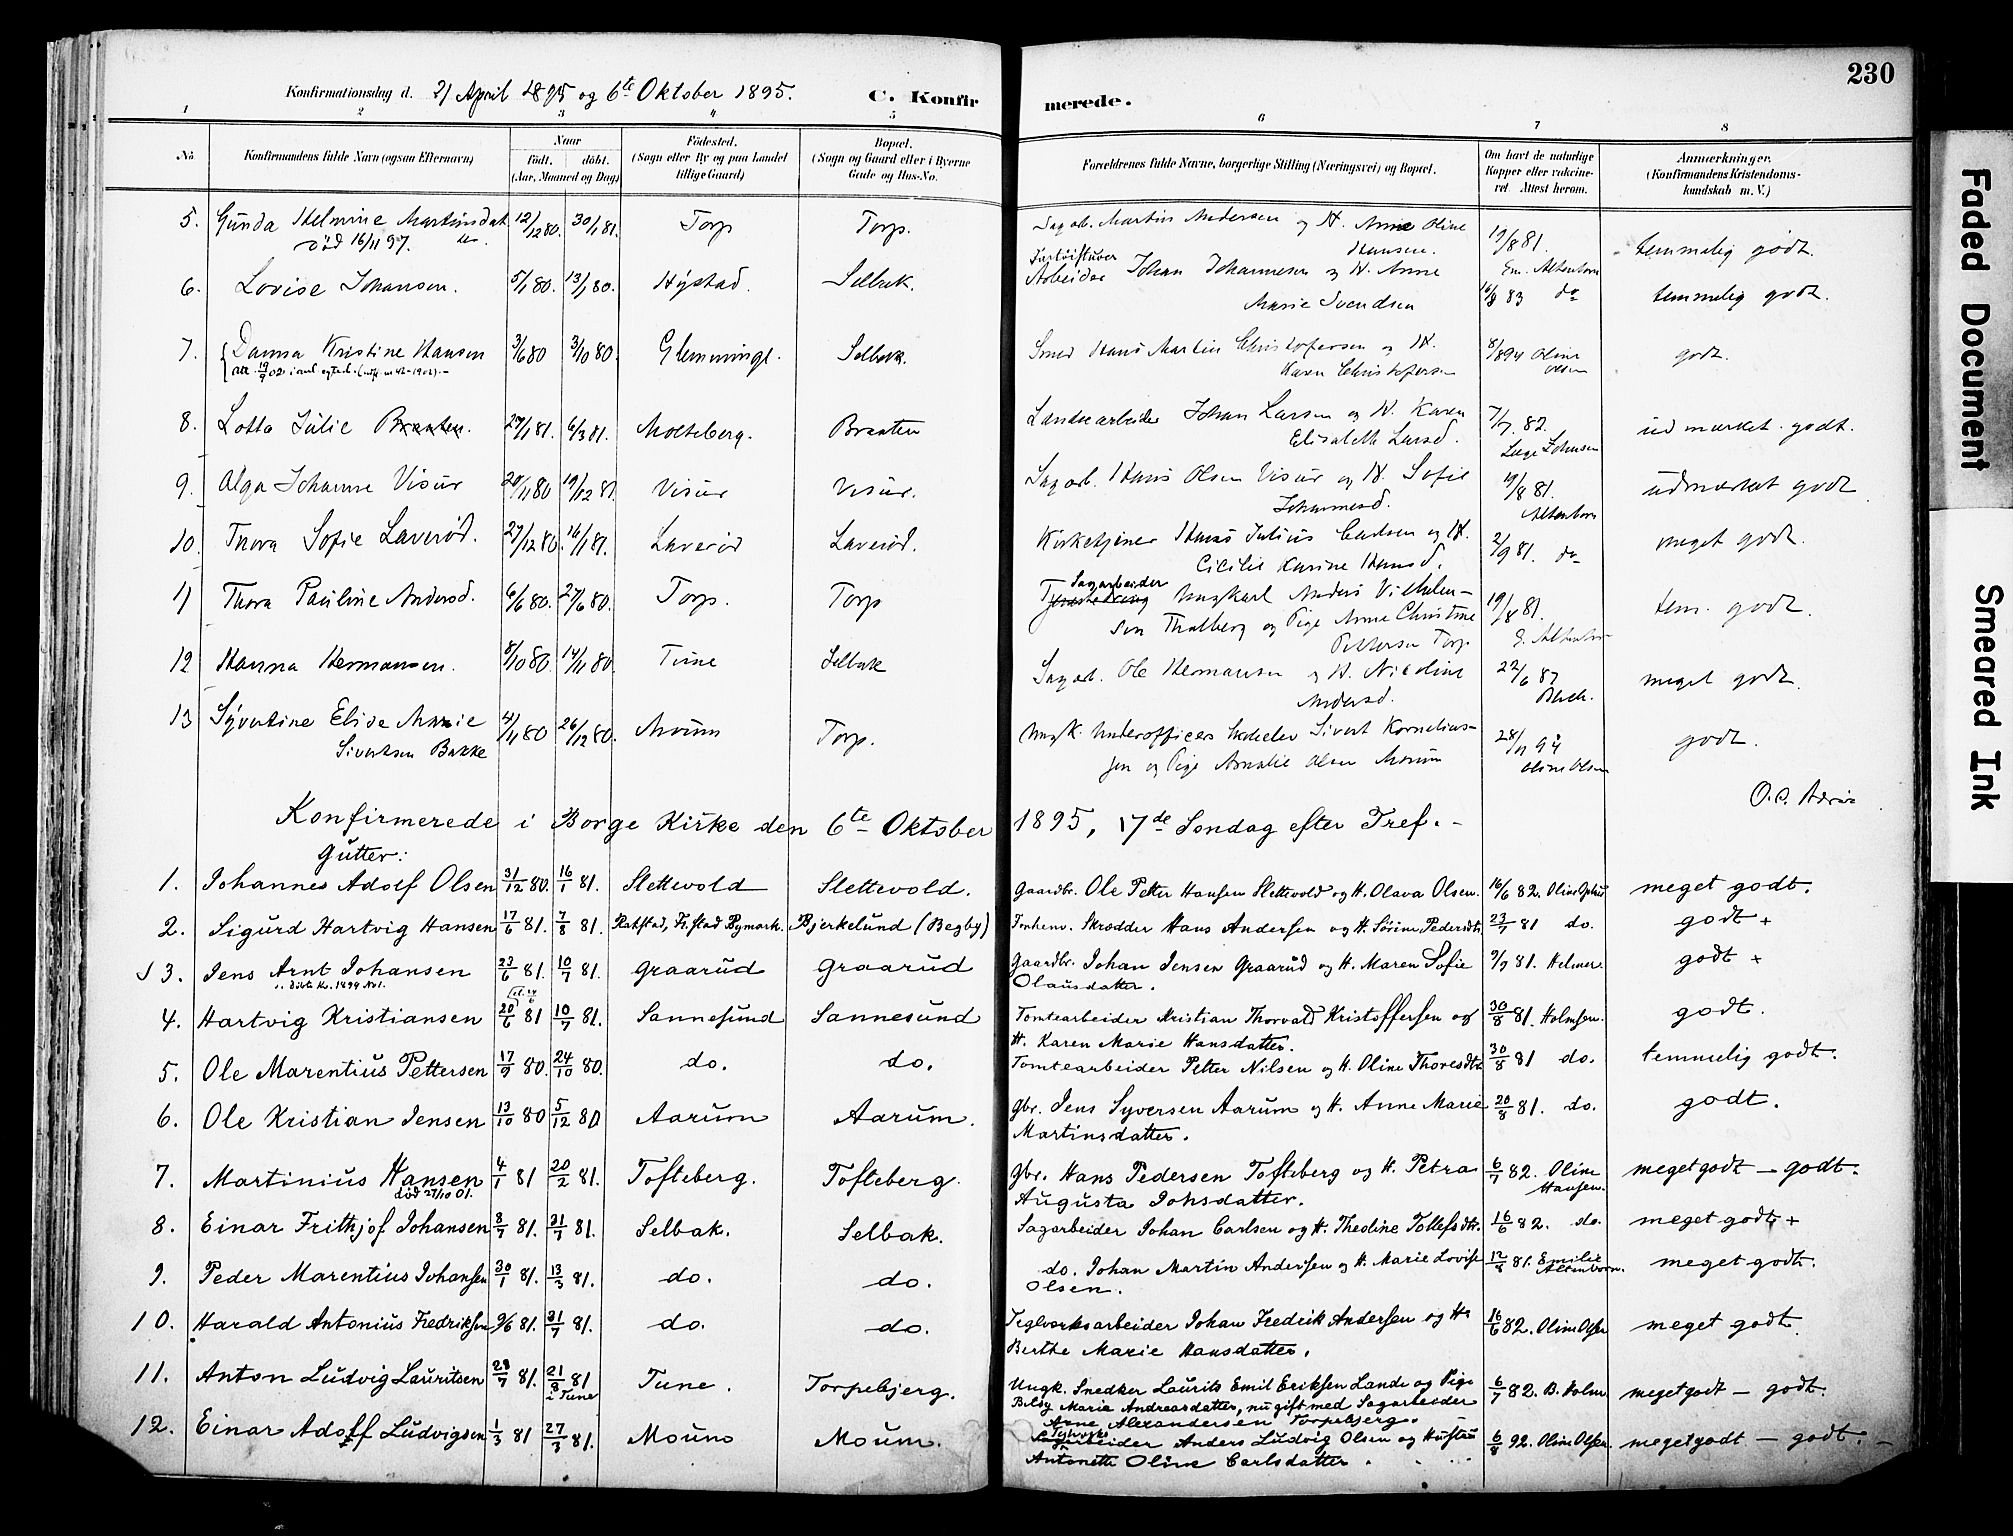 230
Konfirmationsdag d. 21 April 1895 og 6te Oktober 1895.
C. Konfirmerede.
1 2 3 4 5 6 7 8
No.
Konfirmandens fulde Navn (ogsaa Efternavn)
Naar
födt. döbt.
(Aar, Maaned og Dag)
Födested.
(Sogn eller By og paa Landet tillige Gaard)
Bopæl.
(Sogn og Gaard eller i Byerne Gade og Hus-No.
Forældrenes fulde Navne, borgerlige Stilling (Næringsvei) og Bopæl.
Om havt de naturlige Kopper eller vaccineret. Attest herom.
Anmærkninger.
(Konfirmandens Kristendomskundskab m. V.)
5. Gunda Helmine Martinsdat. 12/12 80. 30/1 81. Torp Torp. Sagarb. Martin Andersen og H. Anne Oline Hansen. 19/8 81. Em. Altenborn temmelig godt.
Død 16/11 97.
6. Lovise Johansen. 5/1 80. 13/1 80. Hystad. Selbak. Arbeider Johan Johannesen og H. Anne Marie Svendsen 83 do temmelig godt.
7. Kristine Hansen 3/6 80 3/10 80. Glemmingl. Selbak. Smed Hans Martin Christofersen og H. Karen Christofersen 8/8 94 Oline Olsen godt.
8. Lotta Julie Braaten. 81. 6/3 81. Molteberg. Braaten Landarbeider Johan Larsen og H. Karen Elisabeth Larsd. 7/7. 82. udmærket godt.
9. Olga Johanne Visur 80 19/12 81. Visur Visur. Sagarb. Hans Olsen Visur og H. Sofie Johannesd. 19/8 81. Altenborn udmærket godt
10. Thora Sofie Laverød. 27/12 80. 16/1 81. Laverød Laverød. Kirketjener Hans Julius og H. Cicilie Karine Hansd. 2/9 81. do meget godt.
11 Thora Pauline Andersd. 6/6 80. 27/6 80. Torp. Torp Sagarbeider Ungkarl Anders Vilhelmsen Thalberg og Pige Anne Christine Pettersen Torp 19/8 81. E. Altenborn tem. godt.
12 Hanna Hermansen. 8/10 80. 14/11 80. Tune Selbak Sagarb. Ole Hermansen og H. Nicoline Andersd. 22/6 87 meget godt.
13 Syvertine Elise Marie Sivertsen Bakke 4/11 80 26/12 80. Moum Torp. Ungk. Underofficers Sivert Korneliussen og Pige Amalie Olsen Moum 94 Oline Olsen godt.
Konfirmerede i Borge Kirke den 6te Oktober 1895, 17de Søndag efter Tref. -
Gutter:
1. Johannes Adolf Olsen 31/12 80. 16/1 81. Slettevold Slettevold. Gaardbr. Ole Petter Hansen Slettevold og H. Olava Olsen. 16/6 82. meget godt.
2. Sigurd Hartvig Hansen 17/6 81. 7/8 81. Rakstad, Fr.stad Bymark. Bjerkelund (Begby) Skrædder Hans Andersen og H. Sørine Pedersdtr. 23/7 81 do. godt +
3. Jens Arnt Johansen 23/6 81. 10/7 81. Graarud Graarud Gaardbr. Johan Jensen Graarud og H. Maren Sofie Olausdatter. 9/7 81. Helmer. godt +
4. Hartvig Kristiansen 20/6 81 10/7 81. Sannesund Sannesund Tomtearbeider Kristian Thorvald Kristoffersen og H. Karen Marie Hansdatter. 30/8 81. Holmsen. godt.
5. Ole Marentius Pettersen 17/9 80. 24/10 80. do. do. Tomtearbeider Petter Nilsen og H. Oline Thoresdtr. 30/8 81 do. temmelig godt.
6. Ole Kristian Jensen 13/10 80 5/12 80 Aarum Aarum. Gbr. Jens Syversen Aarum og H. Anne Marie Martinsdatter. 20/8 81. do. godt.
7. Martinius Hansen 4/1 81 20/2 81. Tofteberg. Tofteberg. Gbr. Hans Pedersen Tofteberg og H. Petra Augusta Johsdatter. 6/7 82. Oline Hansen. meget godt - godt.
død 27/10 01.
8. Einar Frithjof Johansen 8/7 81. 31/7 81. Selbak. Selbak. Sagarbeider Johan Carlsen og H. Thedine Tollefsdtr. 16/6 82. do. meget godt +
9. Peder Marentius Johansen 30/1 81. 13/3 81. do. do. do. Johan Martin Andersen og H. Marie Lovise Olsen. 12/8 81. Emilie Altenborn. meget godt.
10. Harald Antonius Fredriksen 9/6 81. 31/7 81. do. do. Teglverksarbeider Johan Fredrik Andersen og H. Berthe Marie Hansdatter. 16/6 82. Oline Olsen meget godt.
11. Anton Ludvig Lauritsen 81. 21/8 81 i Tune Tune. Torpebjerg. Ungk. Snedker Laurits Emil Eriksen Lande og Pige Betsy Maria Andreasdatter, nu gift med Sagarbeider Arne Alexandersen Torpebjerg. 6/7 82. B. Holm meget godt - godt.
12. Einar Adolf Ludvigsen 1/3 81 27/3 81. Moum Moum. Teglverksarbeider Anders Ludvig Olsen og Hustru Antonette Oline Carlsdatter. 6/8 92. Oline Olsen. meget godt - godt.
Faded Document
Smeared Ink